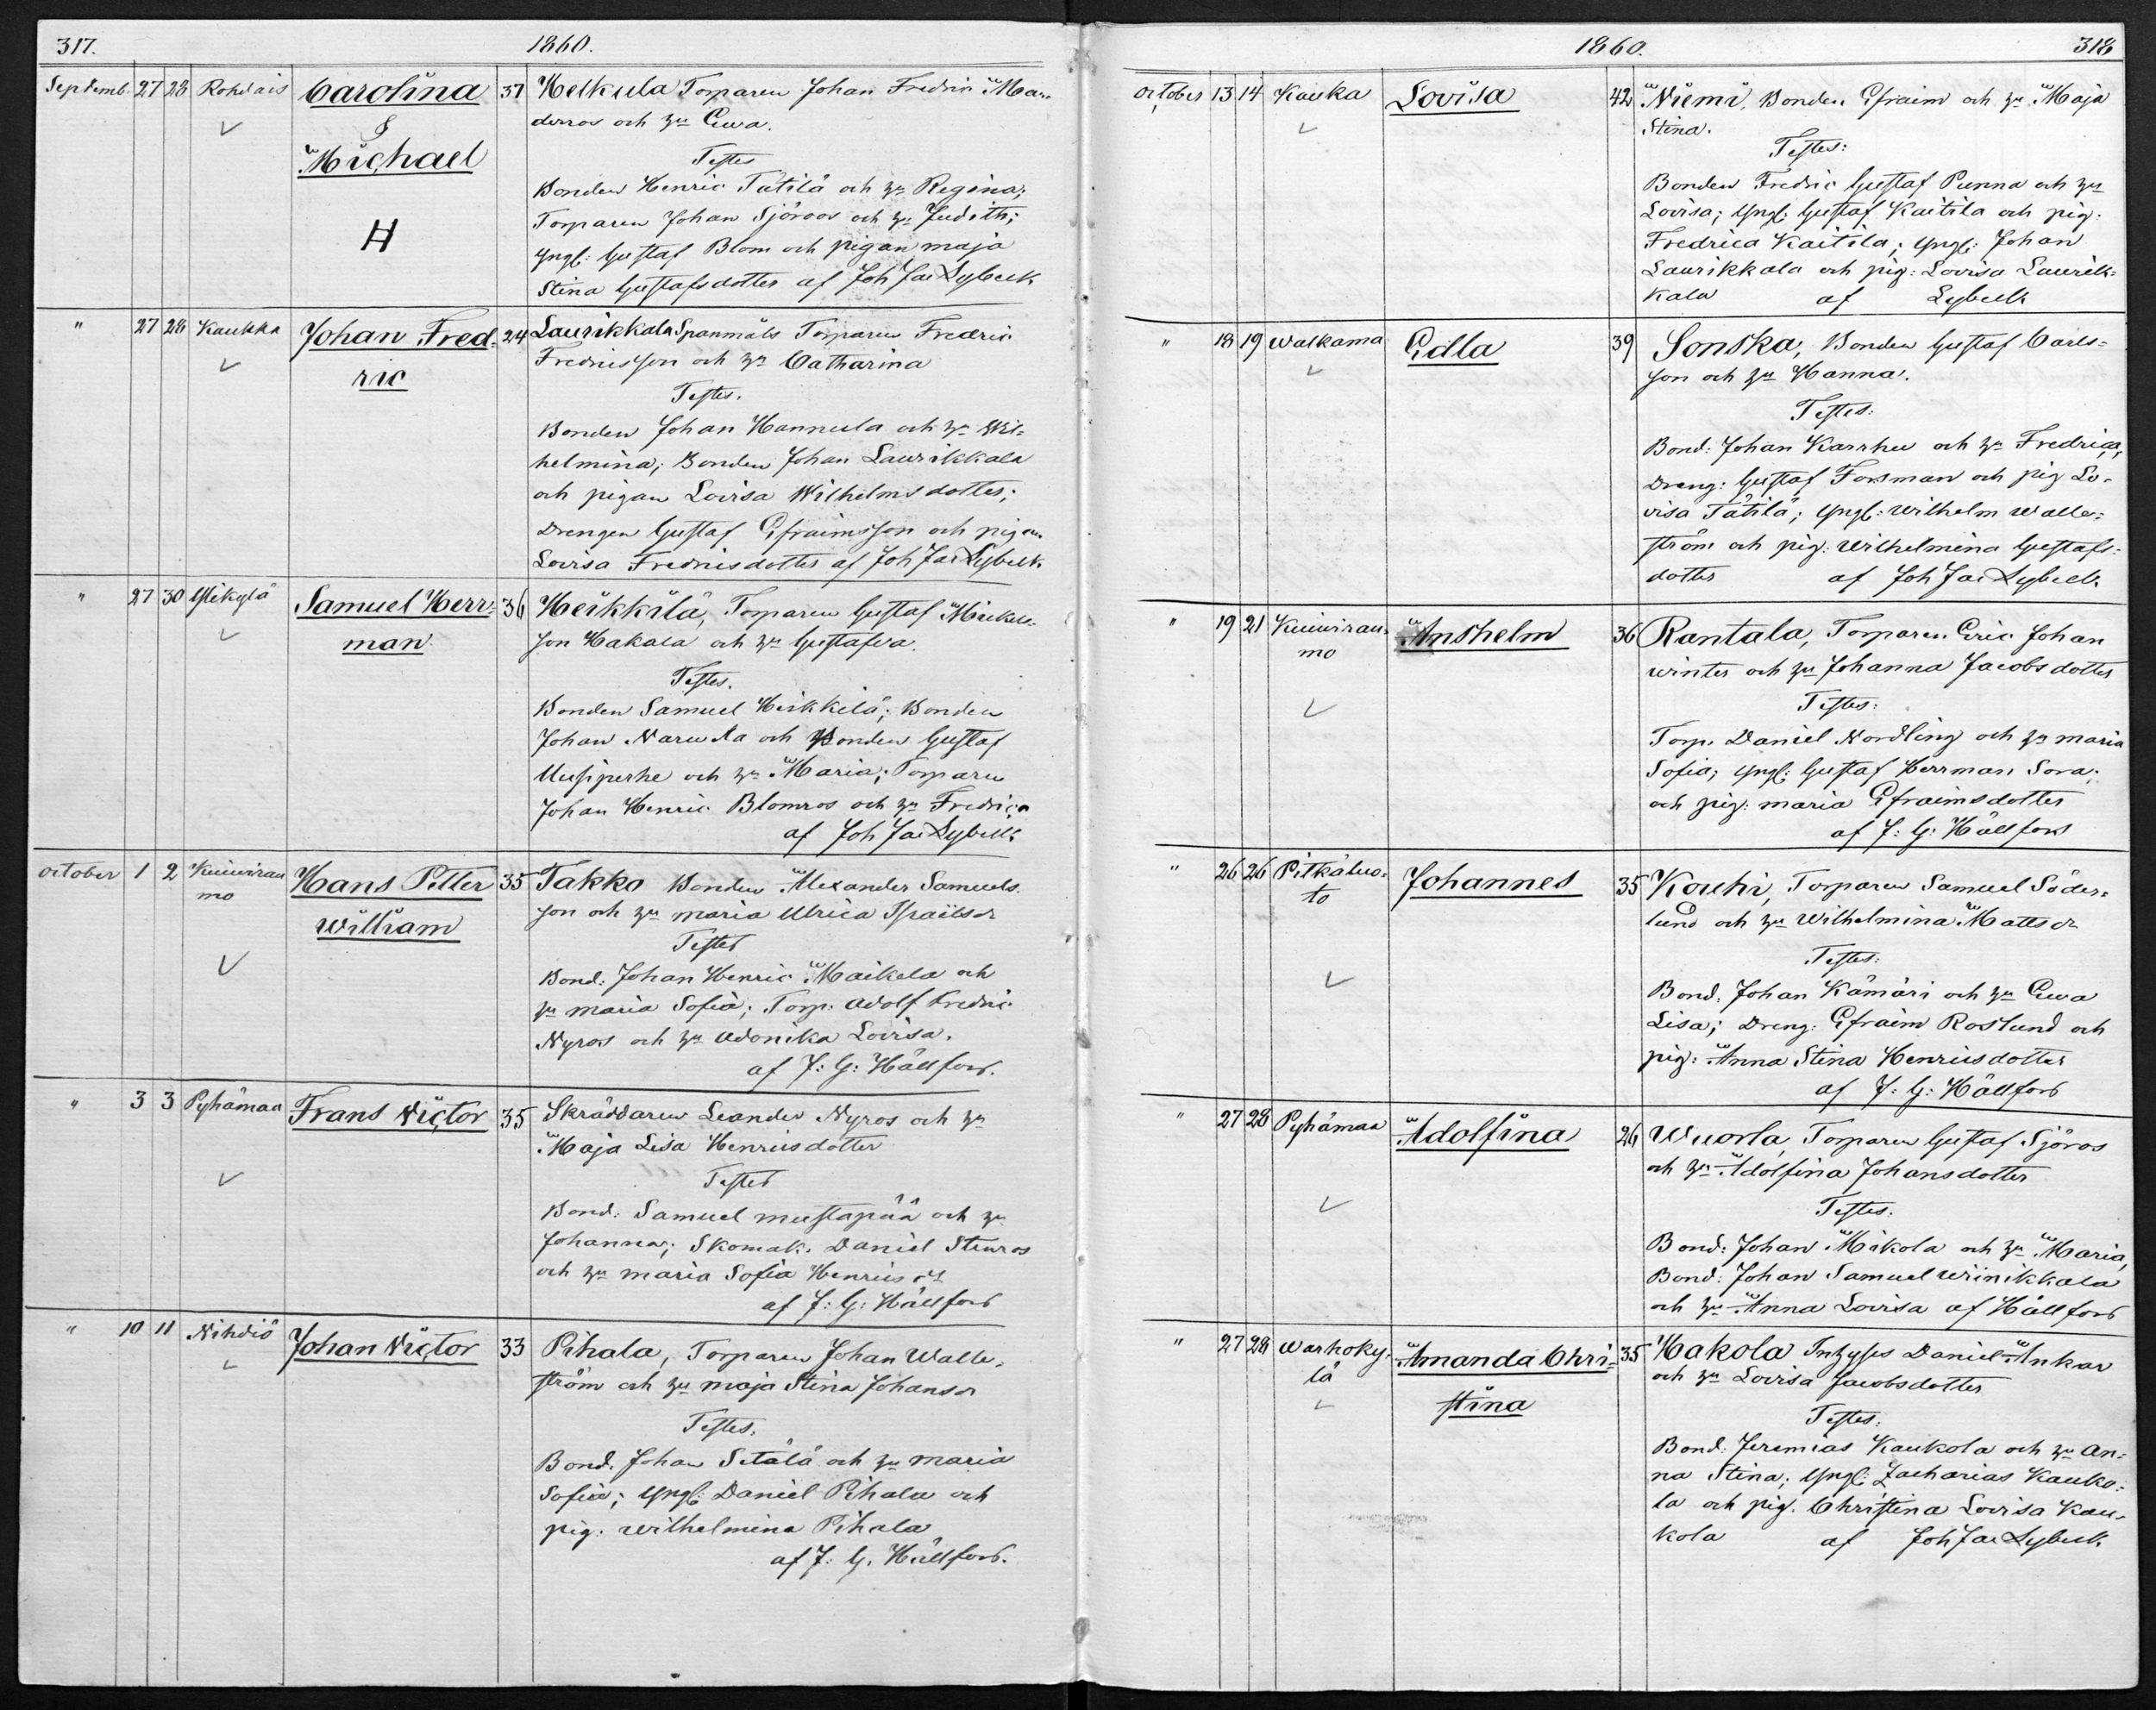 317. 1860.
Septemb. 27 28 Rohdais Carolina 37 Helkula Torparen Johan Fredric Man
& derros och hu Ewa.
Michael Testes
Bonden Henric Tätilä och hu Regina;
Torparen Johan Sjöroos och hu Judith;
H yngl: Gustaf Blom och pigan maja
Stina Gustafsdotter af Joh Jac Lybeck
" 27 28 Kaukka Johan Fred- 24 Laurikkala Spanmåls Torparen Fredric
ric Fredricsson och hu Catharina
Testes.
Bonden Johan Hannula och hu Wil-
helmina; Bonden Johan Laurikkala
och pigan Lovisa Wilhelmsdotter;
Drengen Gustaf Efraimsson och pigan
Lovisa Fredricsdotter af Joh Jac Lybeck.
" 27 30 Ylikylä Samuel Herr- 36 Heikkilä, Torparen Gustaf Mickels-
man son Hakala och hu Gustafva.
Testes.
Bonden Samuel Heikkilä; Bonden
Johan och Bonden Gustaf
Uusiperhe och hu Maria; Torparen
Johan Henric Blomros och hu Fredrica
af Joh Jac Lybeck
October 1 2 Kuiviran Hans Petter 35 Takko Bonden Alexander Samuels
mo William son och hu maria Ulrica Isaicsdr
Testes
Bond: Johan Henric Maikola och
hu maria Sofia; Torp. Adolf Fredric
Nyros och hu Adonika Lovisa.
af J: G: Hällfors.
" 3 3 Pyhämaa Frans Victor 35 Skräddaren Leander Nyros och hu
Maja Lisa Henricsdotter
Testes
Bond: Samuel mustapää och hu
Johanna; Skomak. Daniel Stenros
och hu maria Sofia Henricsdr
af J: G: Hällfors
" 10 11 Nihdiö Johan Victor 33 Pihala, Torparen Johan Walle-
ström och hu maja Stina Johansdr
Testes.
Bond. Johan Setälä och hu maria
Sofia; yngl: Daniel Pihala och
pig: wilhelmina Pihala
af J: G. Hällfors.
1860. 318
October 13 14 Kauka Lovisa 42 Niemi, Bonden Efraim och hu Maja
Stina.
Testes:
Bonden Fredric Gustaf Punna och hu
Lovisa; yngl: Gustaf Kaitila och pig:
Fredrica Kaitila; yngl: Johan
Laurikkala och pig: Lovisa Laurik-
kala af Lybeck
" 18 19 Walkama Edla 39 Sonska, Bonden Gustaf Carls-
son och hu Hanna.
Testes:
Bond: Johan Karrhu och hu Fredrica,
Dreng: Gustaf Forsman och pig Lo-
visa Tätilä; yngl: Wilhelm Walle-
ström och pig: Wilhelmina Gustafs-
dotter af Joh Jac Lybeck
" 19 21 Kuiviran- Anshelm 36 Rantala, Torparen Eric Johan
mo winter och hu Johanna Jacobsdotter
Testes:
Torp. Daniel Nordling och hu maria
Sofia; yngl: Gustaf Herrman Sora;
och pig: maria Efraimsdotter
af J: G: Hällfors
" 26 26 Pitkäluo- Johannes 35 Kouhi, Torparen Samuel Söder-
to lund och hu Wilhelmina Mattsdr
Testes:
Bond: Johan Kämäri och hu Ewa
Lisa; Dreng: Efraim Roslund och
pig: Anna Stina Henricsdotter
af J: G: Hällfors
" 27 28 Pyhämaa Adolfina 26 Wuorla, Torparen Gustaf Sjöros
och hu Adolfina Johansdotter
Testes:
Bond: Johan Mikola och hu Maria,
Bond: Johan Samuel Wiinikkala
och hu Anna Lovisa af Hällfors
" 27 28 Warhoky- Amanda Chri- 35 Hakola Inhyses Daniel Ankar
lä stina och hu Lovisa Jacobsdotter
Testes:
Bond: Jeremias Kaukola och hu An-
na Stina; yngl: Zacharias Kauko-
la och pig. Christina Lovisa Kau-
kola af Joh Jac Lybeck